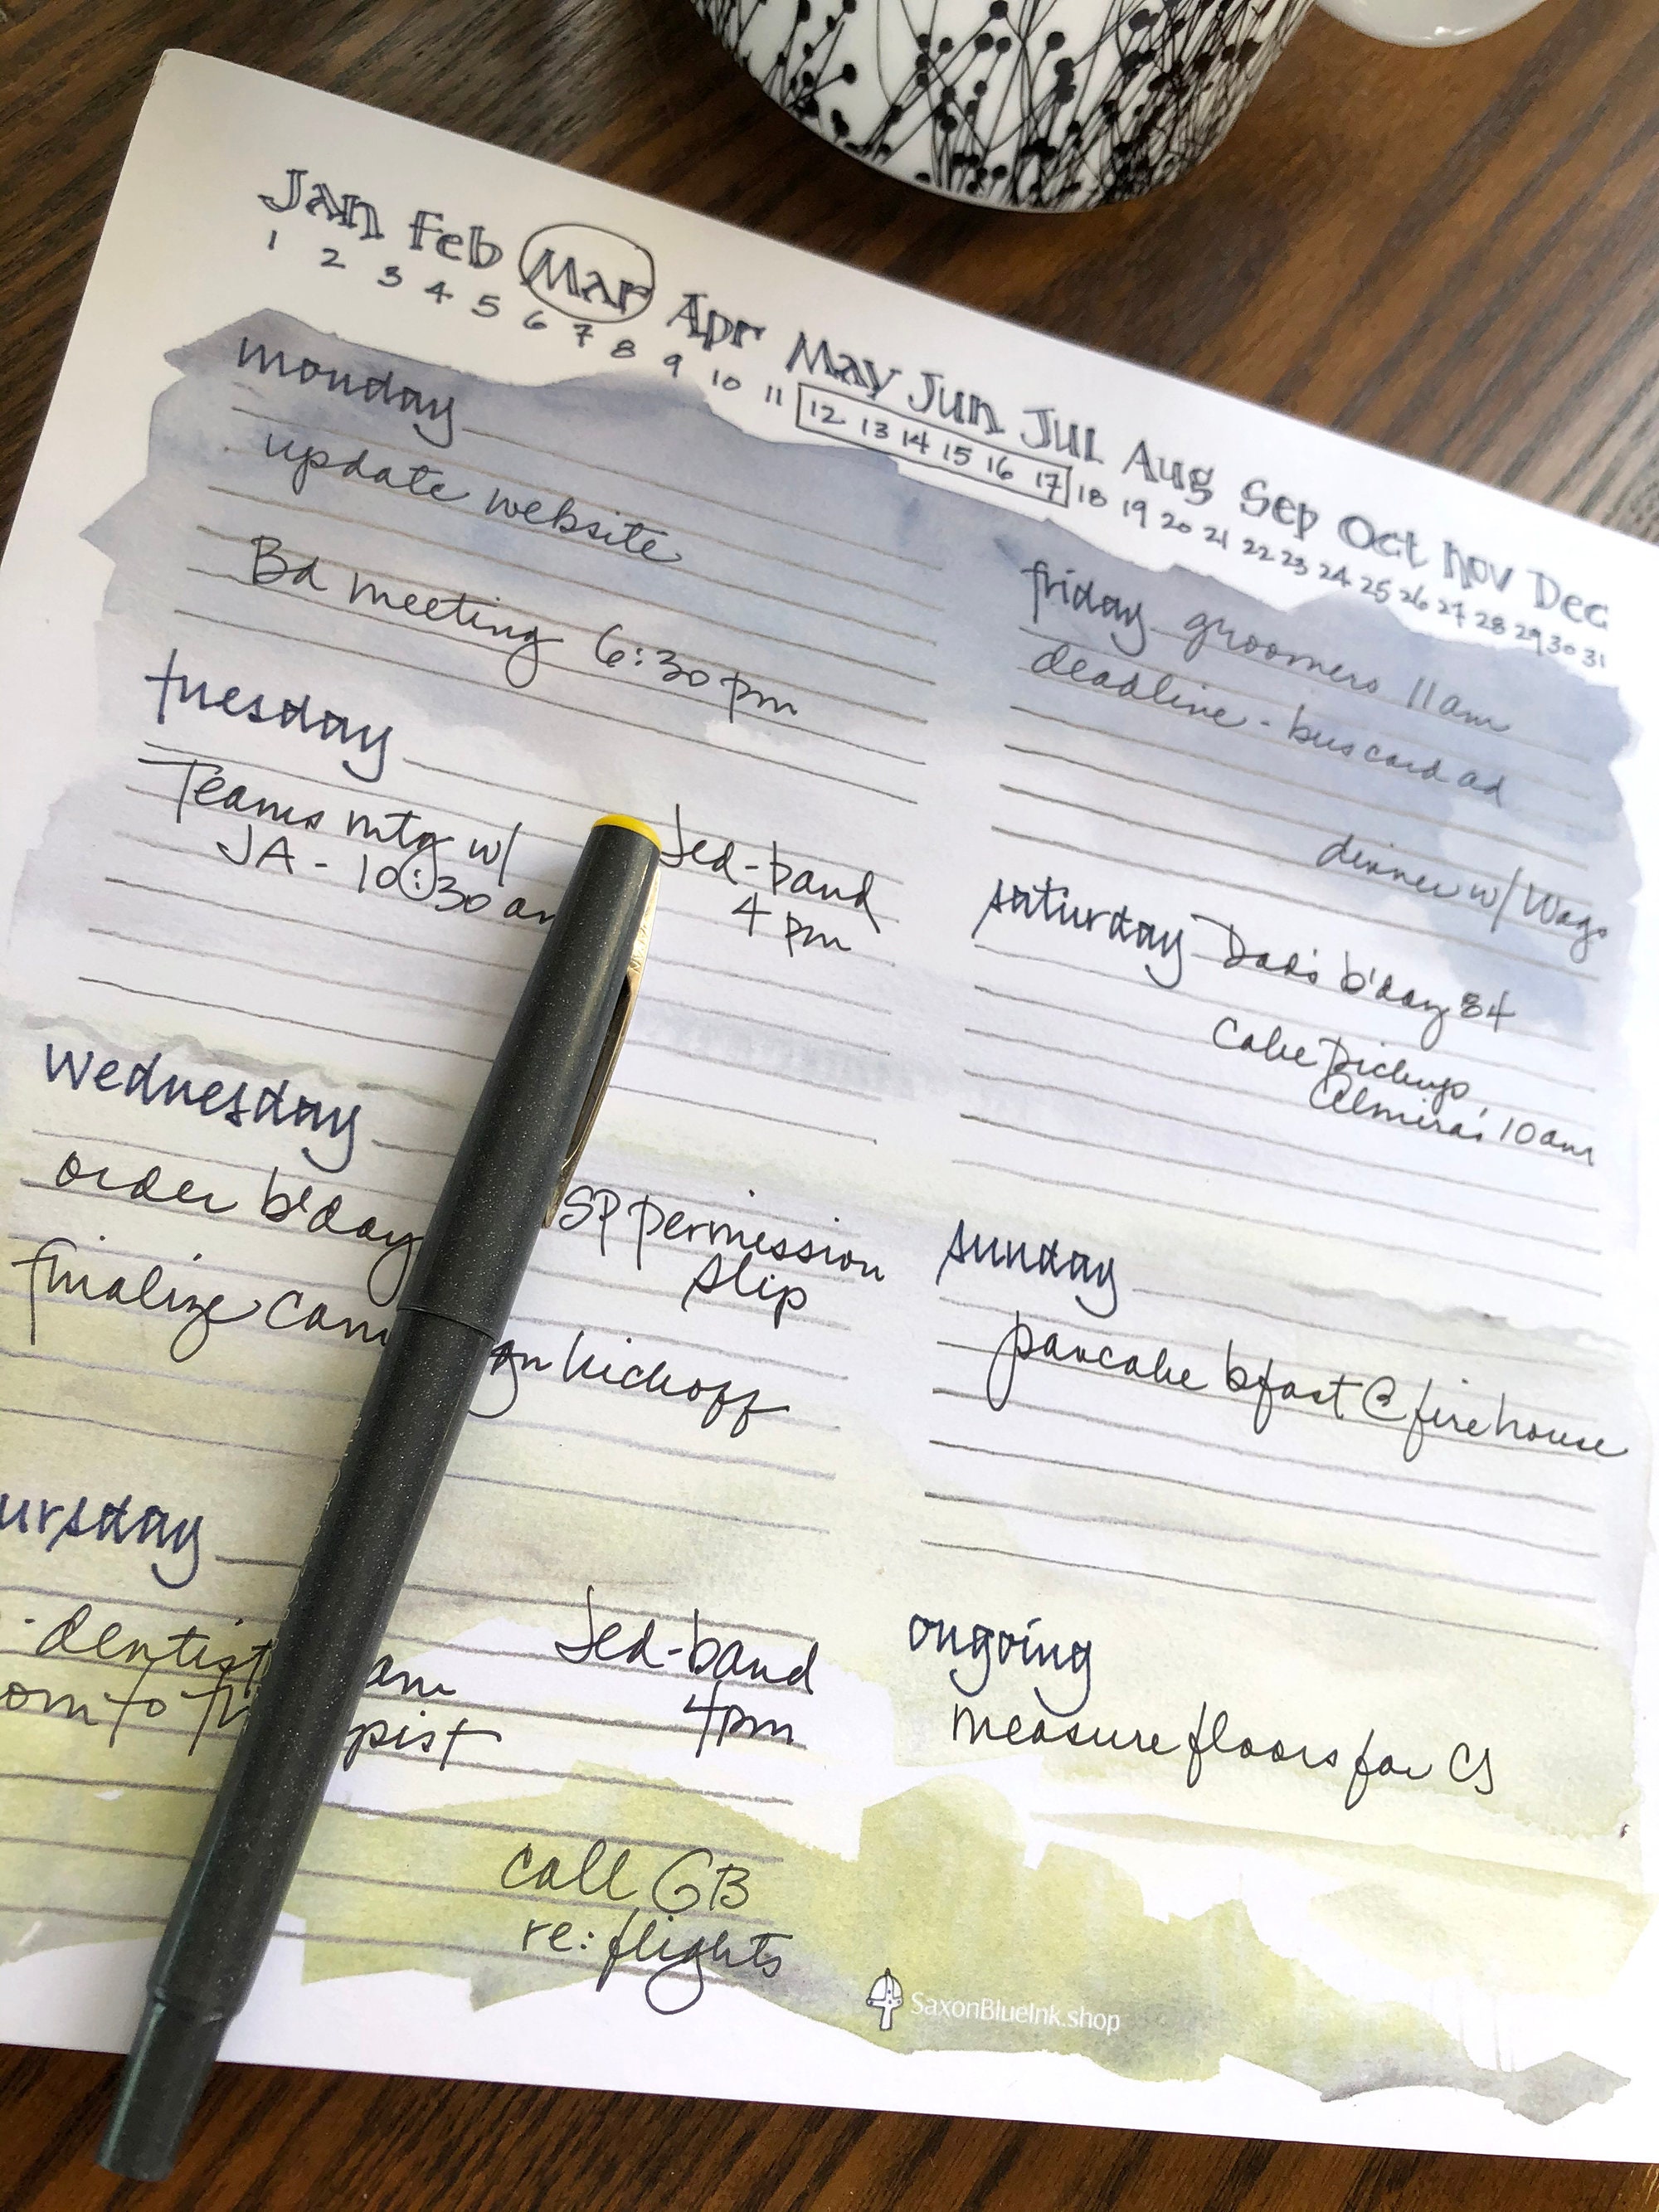 Jan Feb Mar Apr May Jun Jul Aug Sep Oct Nov Dec
1 2 3 4 5 6 7 8 9 10 11 12 13 14 15 16 17 18 19 20 21 22 23 24 25 26 27 28 29 30 31
monday
update website
Bd meeting 6:30 pm
tuesday
Teams mtg w/
JA - 10:30 am
Jed-band
4 pm
wednesday
order b'day
SP permission
slip
finalize kickoff
dentist
am
to
Jed-band
4pm
call GB
re: flights
friday groomers 11am
deadline - bus card ad
dinner w/ Wags
saturday Dad's b'day 84
Cake pickup,
Elmira's, 10am
sunday
pancake bfast @ firehouse
ongoing
measure floors for CJ
SaxonBlueInk.shop